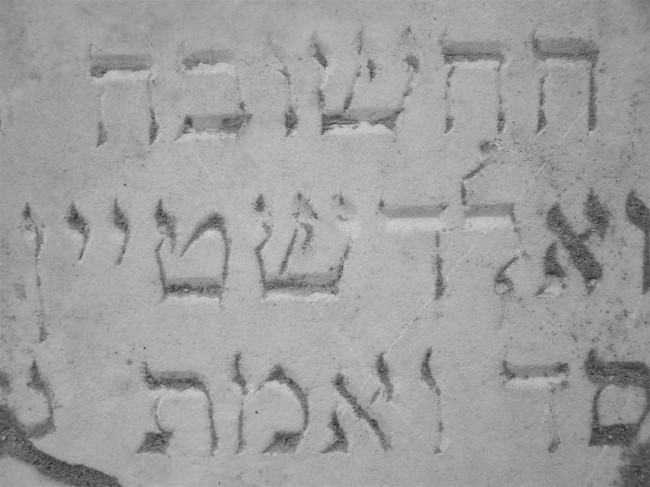 החשובה
ואלדשטיין
סד ואמת